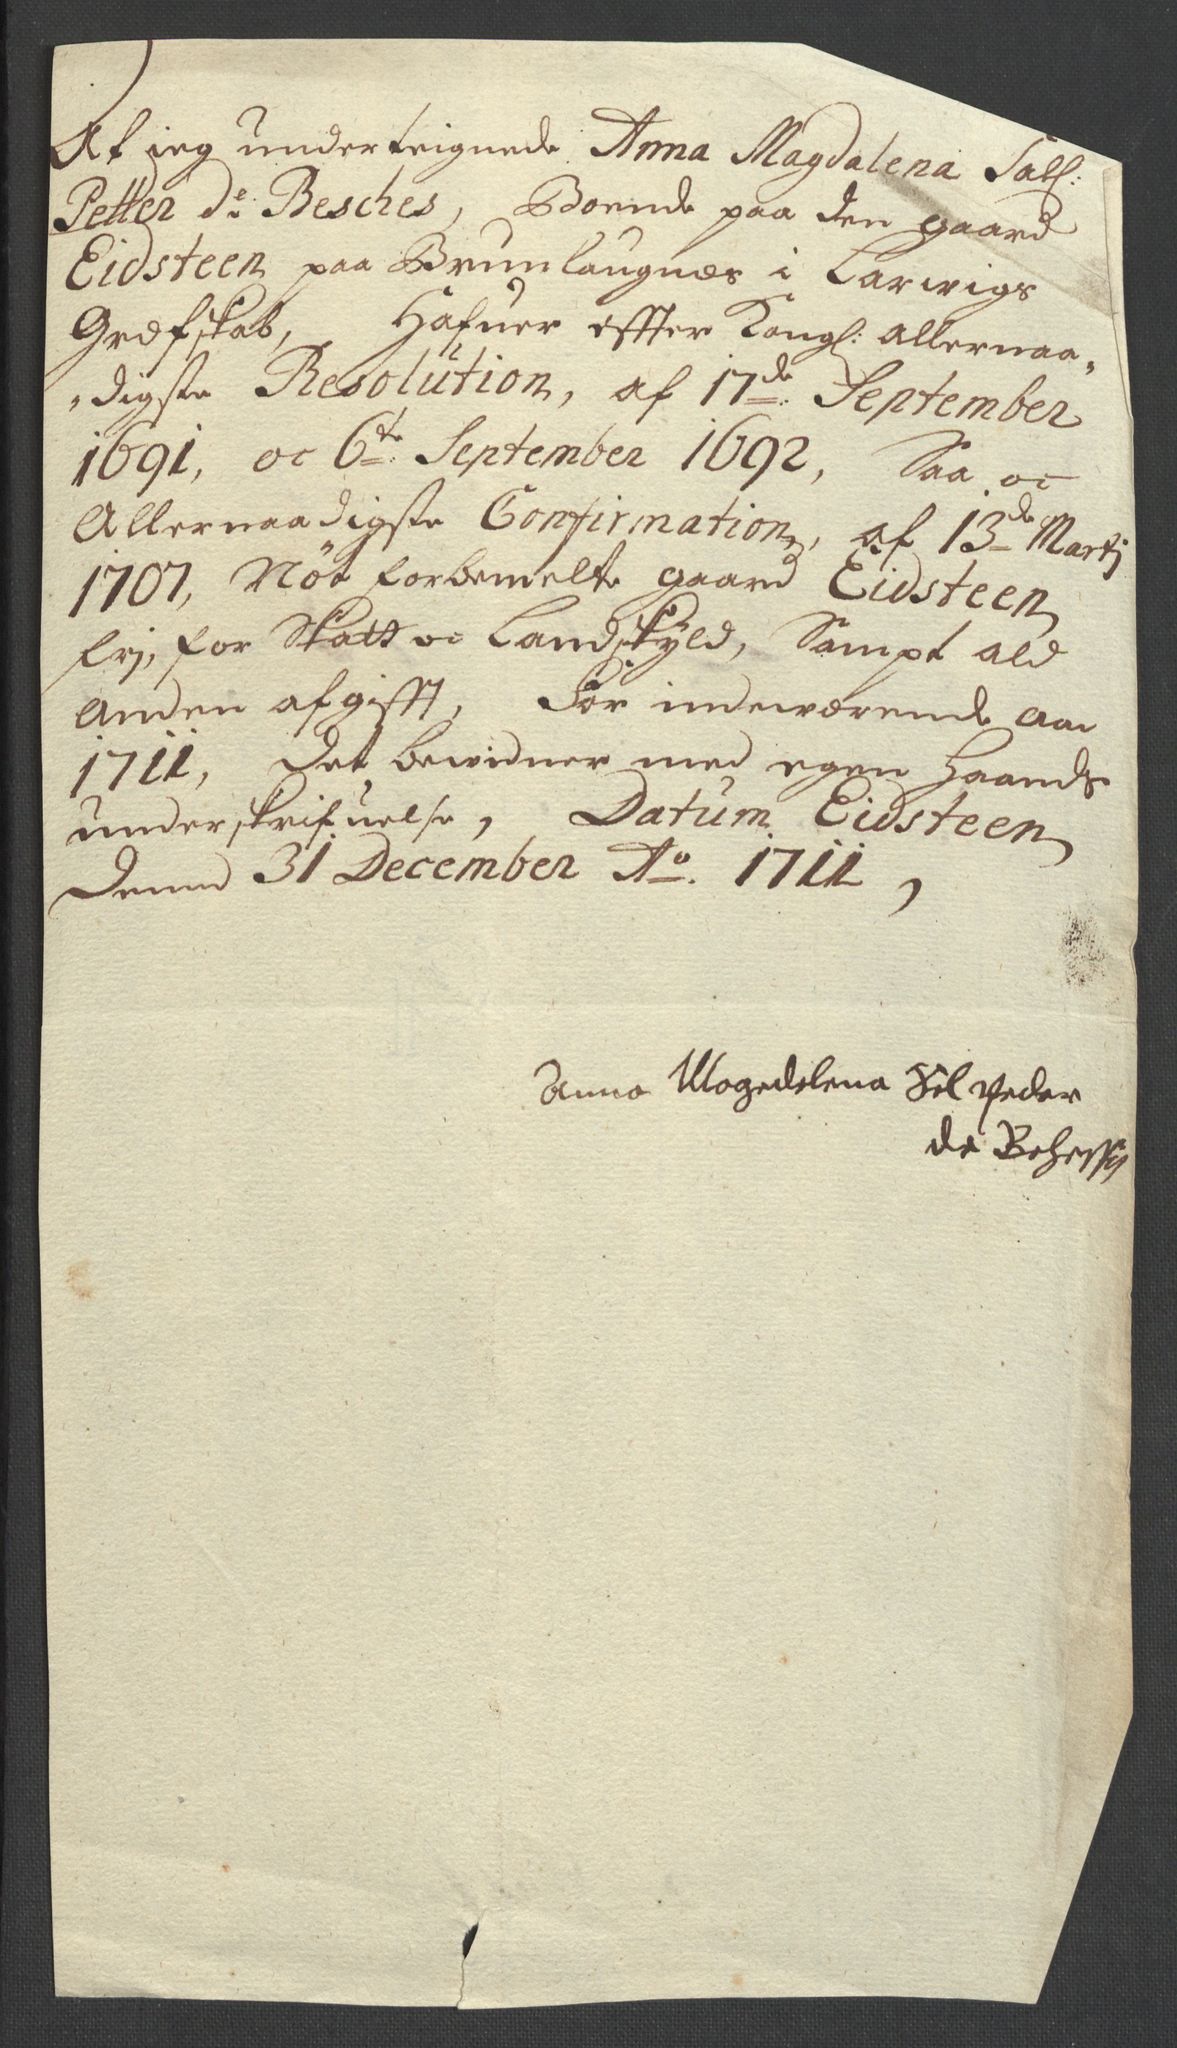 At ieg underteignede Anna Magdalena Sall:
Petter de Besches, Boende paa den gaard
Eidsteen paa Brunlaugnæs i Larwigs
Græfskab, Hafuer effter Kongl: allernaa-
digste Resolution, af 17de September
1691, oc 6te September 1692, Saa oc
Allernaadigste Confirmation, af 13de Martj
1707, Nöt forbemelte gaard Eidsteen
frj, for Skatt oc Landskyld, Sampt ald
anden afgifft, for indewærende aar
1711, Det bewidner med egen Haands
underskrifuelse, Datum Eidsteen
Dennd 31 December Ao. 1711,
Anna Magedelena Sel Peder
de Behessis